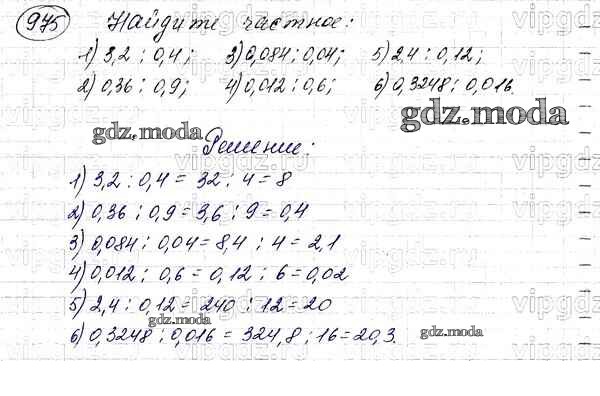 975 Найдите частное:
1) 3,2 : 0,4; 3) 0,084 : 0,04; 5) 2,4 : 0,12;
2) 0,36 : 0,9; 4) 0,012 : 0,6; 6) 0,3248 : 0,016.
gdz.moda
gdz.moda
Решение:
1) 3,2 : 0,4 = 32 : 4 = 8
2) 0,36 : 0,9 = 3,6 : 9 = 0,4
3) 0,084 : 0,04 = 8,4 : 4 = 2,1
4) 0,012 : 0,6 = 0,12 : 6 = 0,02
5) 2,4 : 0,12 = 240 : 12 = 20
gdz.moda
6) 0,3248 : 0,016 = 324,8 : 16 = 20,3.
gdz.moda